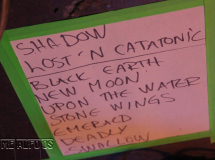 SHADOW
LOST 'N CATATONIC
BLACK EARTH
NEW MOON
UPON THE WATER
STONE WINGS
EMERALD
DEADLY
SWALLOW